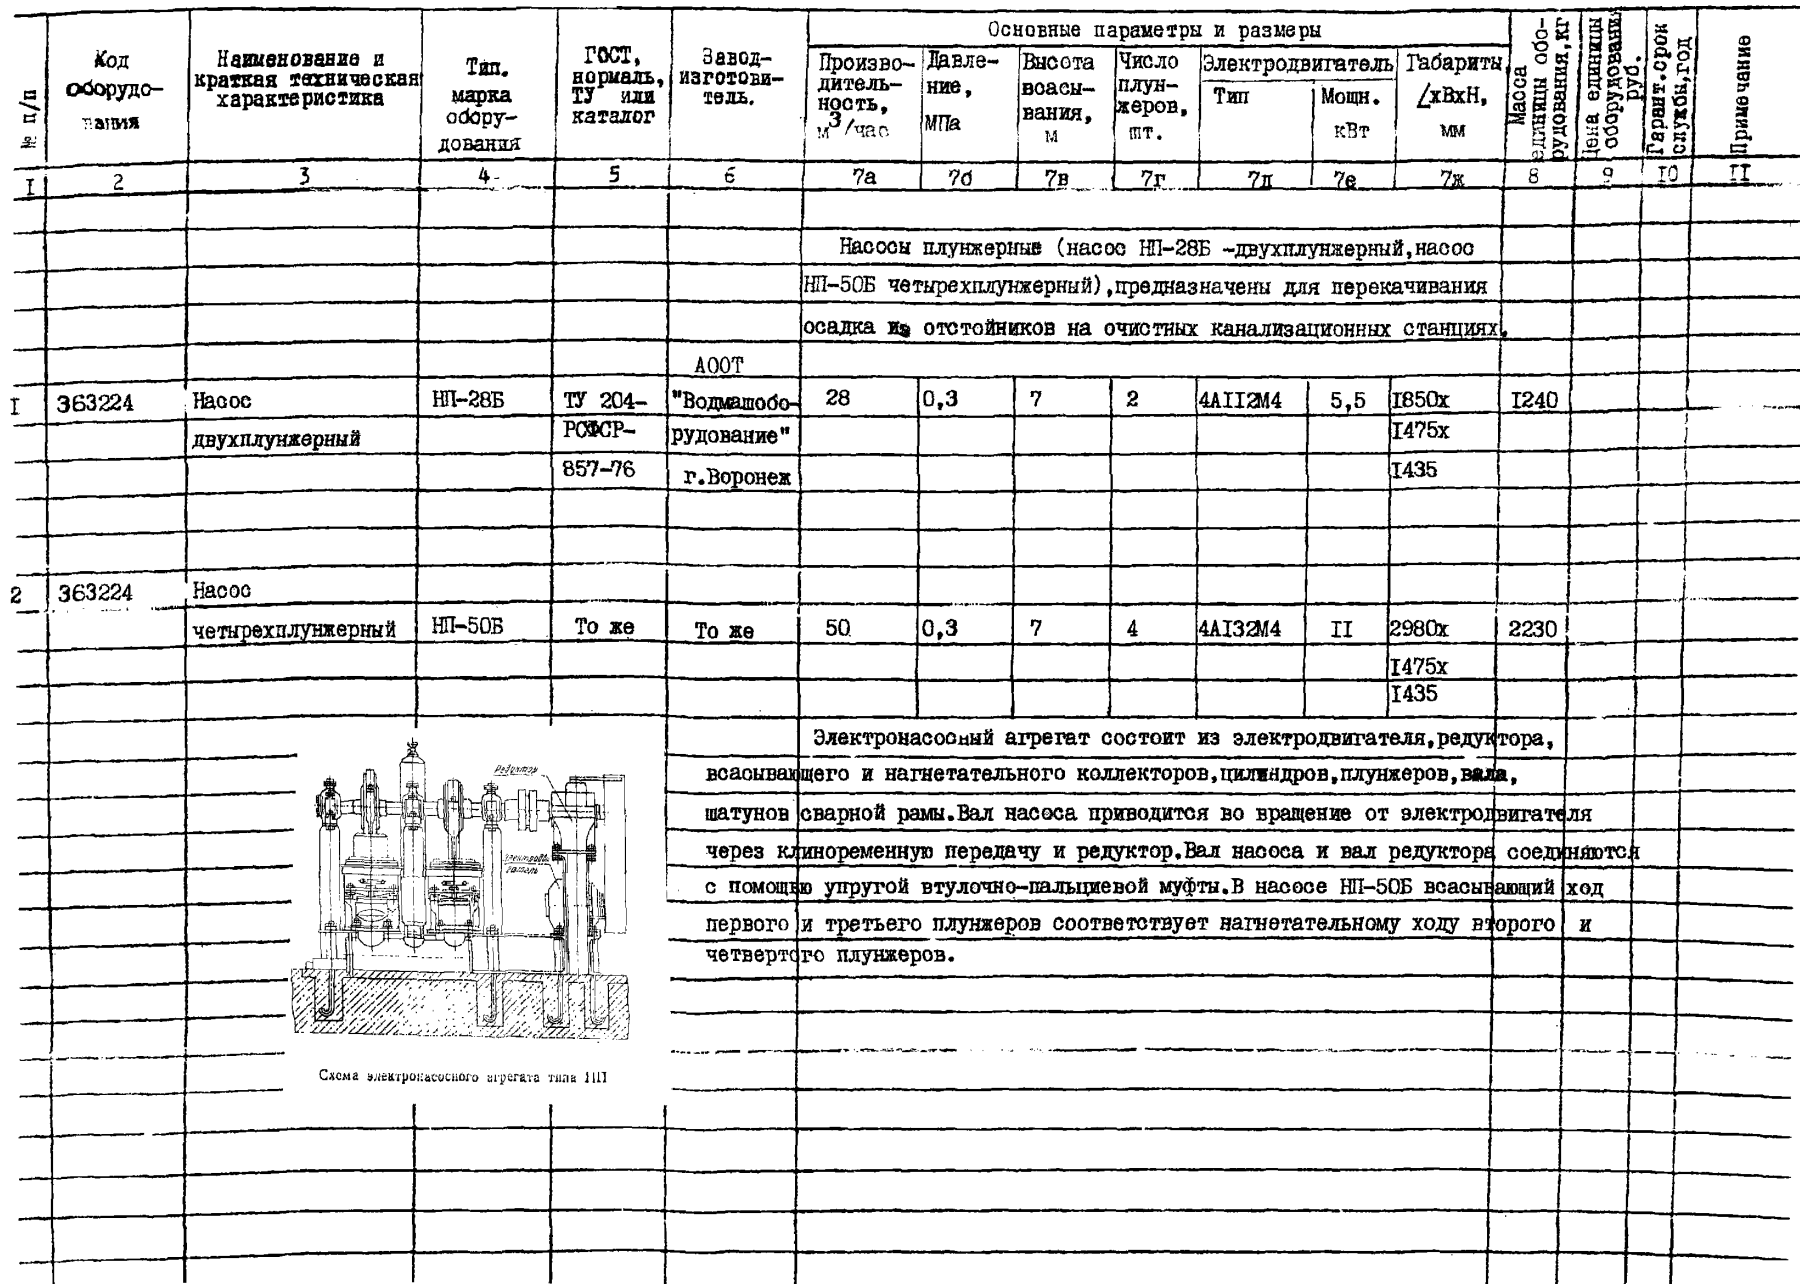 № п/п
Код
оборудо-
вания
Наименование и
краткая техническая
характеристика
Тип.
марка
обору-
дования
ГОСТ,
нормаль,
ТУ или
каталог
Завод-
изготови-
тель.
Основные параметры и размеры
Произво-
дитель-
ность,
м3/час
Давле-
ние,
МПа
Высота
всасы-
вания,
м
Число
плун-
жеров,
шт.
Электродвигатель
Тип
Мощн.
кВт
Габариты
LхВхН,
мм
Масса
единицы обо-
рудования,кг
Цена единицы
оборудования
руб.
Гарант.срок
службы,год
Примечание
I 2 3 4 5 6 7а 7б 7в 7г 7д 7е 7ж 8 9 I0 II
Насосы плунжерные (насос НП-28Б -двухплунжерный,насос
НП-50Б четырехплунжерный),предназначены для перекачивания
осадка из отстойников на очистных канализационных станциях.
АООТ
I 363224 Насос НП-28Б ТУ 204- "Водмашобо- 28 0,3 7 2 4АII2М4 5,5 I850х I240
двухплунжерный РСФСР- рудование" I475х
857-76 г.Воронеж I435
2 363224 Насос
четырехплунжерный НП-50Б То же То же 50 0,3 7 4 4АI32М4 II 2980х 2230
I475х
I435
Электронасосный агрегат состоит из электродвигателя,редуктора,
всасывающего и нагнетательного коллекторов,цилиндров,плунжеров,вала,
шатунов сварной рамы.Вал насоса приводится во вращение от электродвигателя
через клиноременную передачу и редуктор.Вал насоса и вал редуктора соединяются
с помощью упругой втулочно-пальциевой муфты.В насосе НП-50Б всасывающий ход
первого и третьего плунжеров соответствует нагнетательному ходу второго и
четвертого плунжеров.
Редуктор
Электродви-
гатель
Схема электронасосного агрегата типа НП